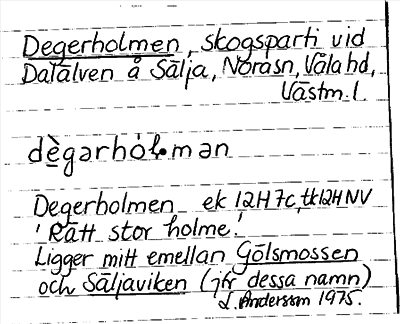 Degerholmen, skogsparti vid
Dalälven å Sälja, Noråsn, Våla hd,
Västm. l.
dègərhòlmən
Degerholmen ek 12H7c, tk12HNV
'Rätt stor holme.'
Ligger mitt emellan Gölsmossen
och Säljaviken (jfr dessa namn)
L. Andersson 1975.